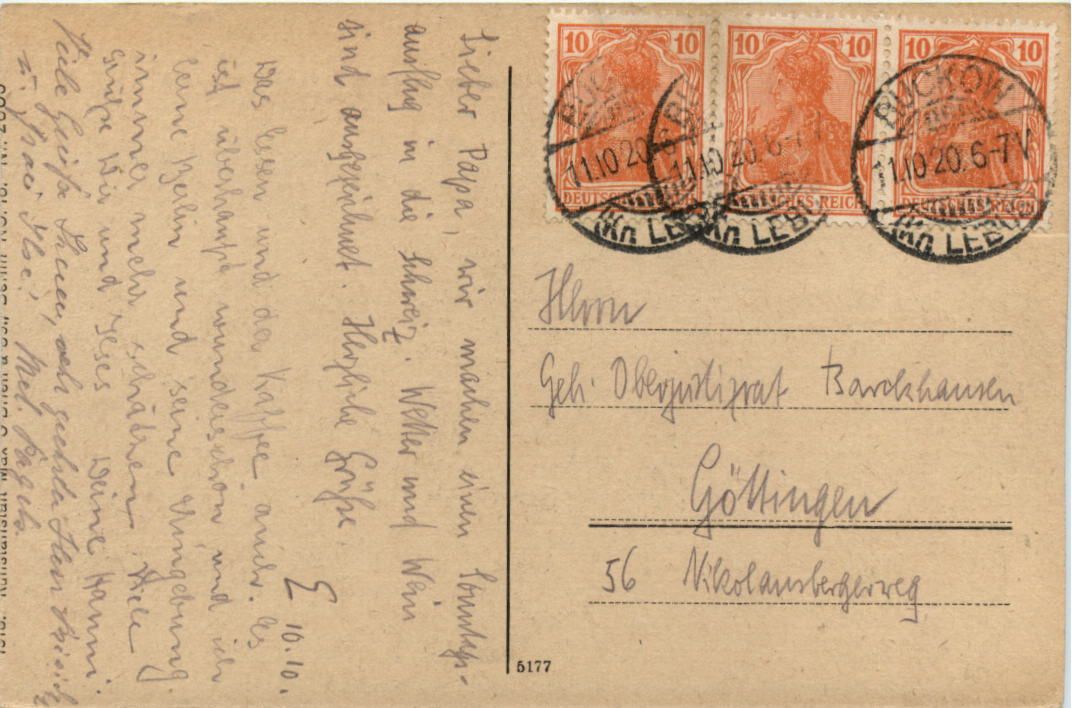 Lieber Papa, wir machen einen Sonntags-
ausflug in die Schweiz. Wetter und Wein
sind ausgezeichnet. Herzliche Grüße.
E 10.10.
Das Essen und der Kaffee auch. Es
ist überhaupt wunderschön und ich
lerne Berlin und seine Umgebung
immer mehr schätzen. Viele
Grüße Dir und Ilses Deine Hanni.
Viele Grüße Ihnen, sehr geehrter Herr
u. Ilse!
10 10
10 10
10 10
DEUTSCHES REICH
DEUTSCHES REICH
DEUTSCHES REICH
BUCKOW
11.10.20.6-7V
(Kr. LEBUS
BUCKOW
11.10.20.6-7V
(Kr. LEBUS
BUCKOW
11.10.20.6-7V
(Kr. LEBUS
Herrn
Geh. Oberjustizrat Barckhausen
Göttingen
56 Nikolausbergerweg
5177